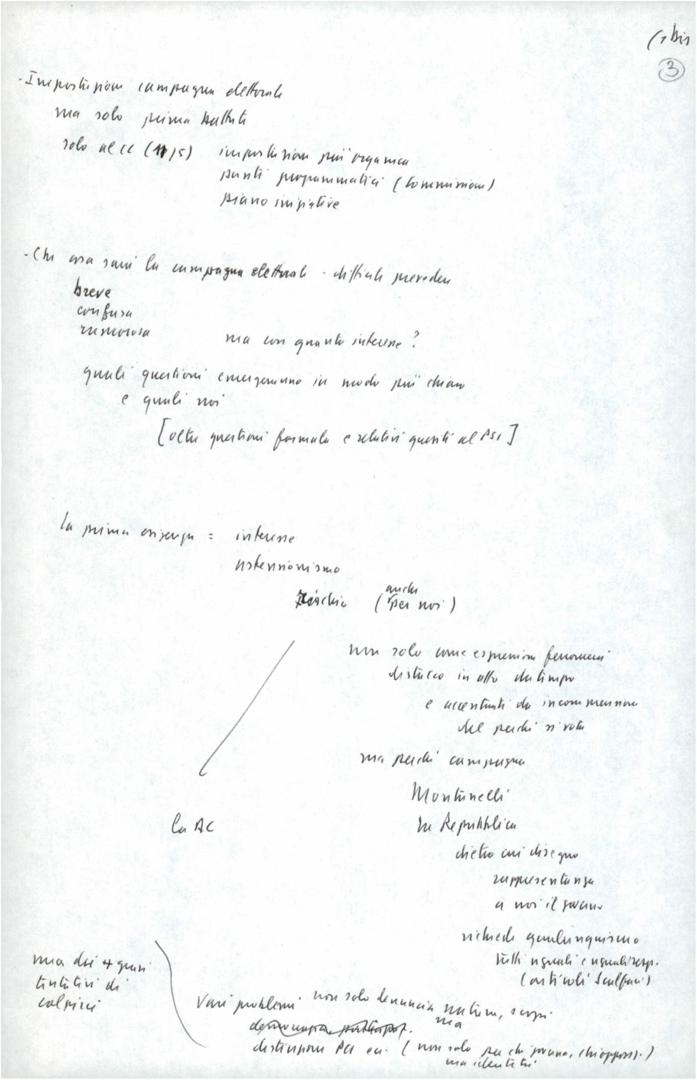 (1 bis
3
- Impostazione campagna elettorale
ma solo prime battute
solo al CC (11/5) impostazione più organica
punti programmatici (Commissioni)
piano iniziative
- Che cosa sarà la campagna elettorale - difficile prevedere
breve
confusa
rumorosa
ma con quanto interesse?
quali questioni emergeranno in modo più chiaro
e quali noi
[oltre questioni formula e relativi quesiti al PSI]
la prima esigenza = interesse
astensionismo
rischio (anche per noi)
non solo come espressione fenomeni
distacco in atto da tempo
e accentuati da incomprensione
del perché si vota
ma perché campagna
Montanelli
la Repubblica
dietro cui disegno
rappresentanza
a noi il
la AC
richiede qualunquismo
tutti uguali e ugual. resp.
(articoli Scalfari)
ma dei + gravi
tentativi di
colpirci
Vari problemi non solo denuncia natura, scopi
ma
distinzione PCI ecc. (non solo per chi governa, chi oppos.)
ma identità